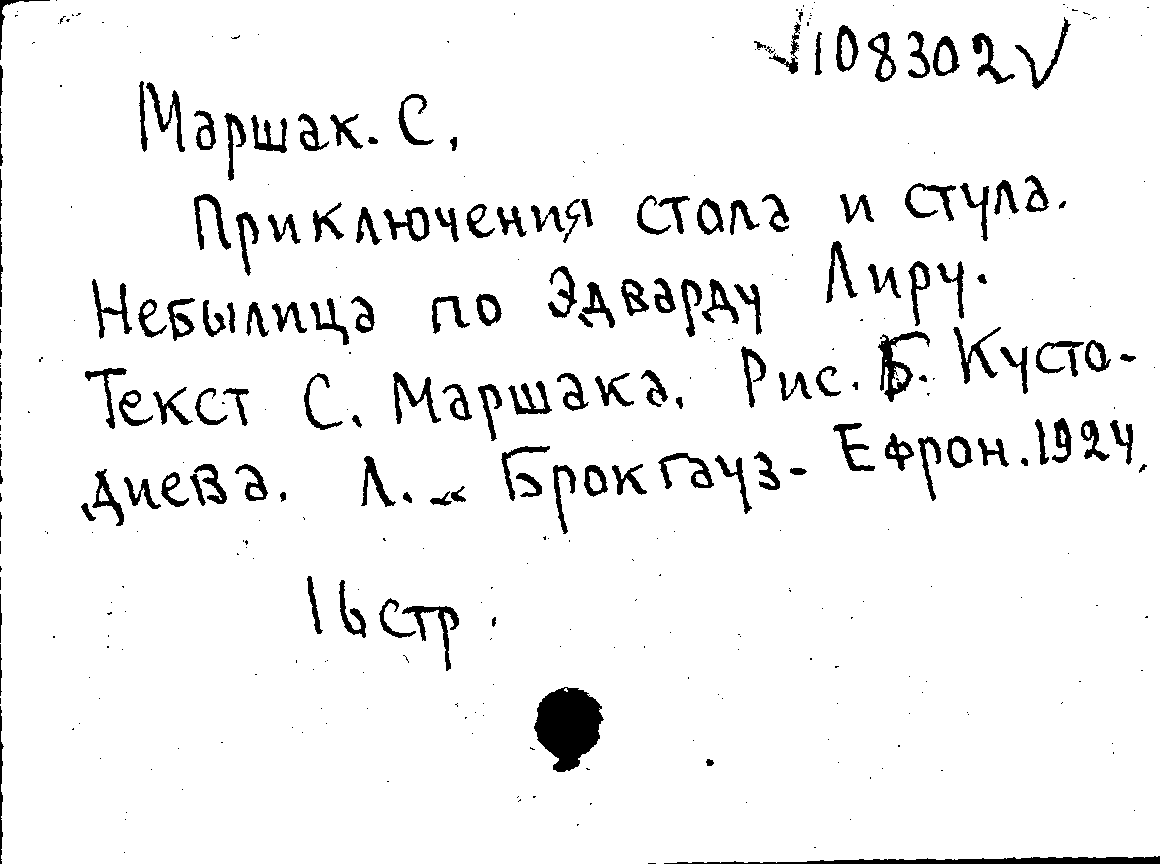 √108302√
Маршак. С.
Приключения стола и стула.
Небылица по Эдварду Лиру.
Текст С. Маршака. Рис. Б. Кусто-
диева. Л. „ Брокгауз - Ефрон. 1924,
16 стр.